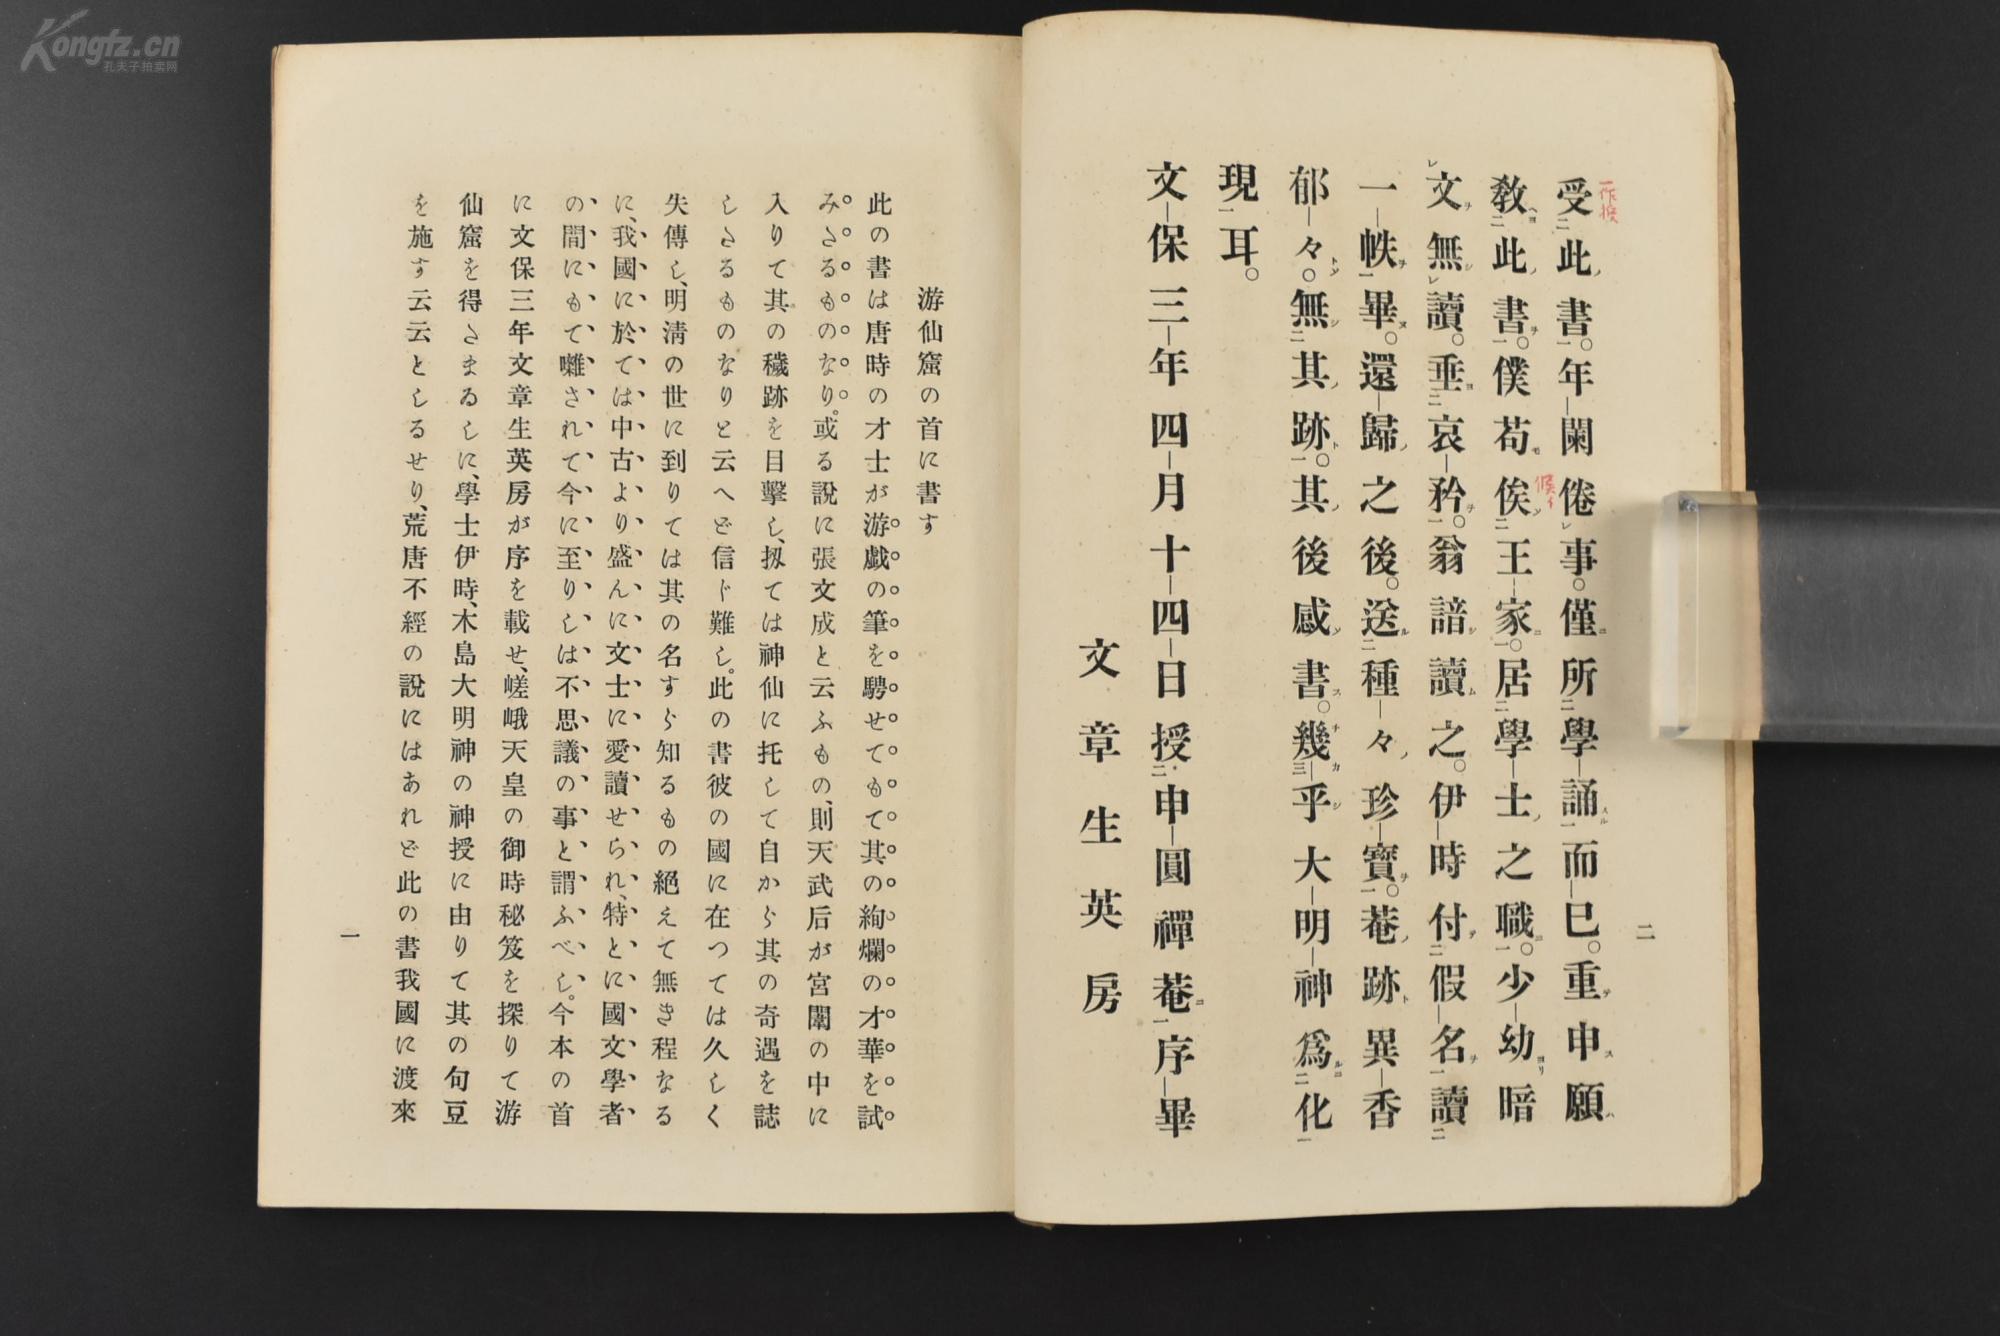 Kongfz.cn
孔夫子拍卖网
二
受此書。年闌倦事。僅所學誦而已。重申願
一作授
教此書。僕苟俟王家。居學士之職。少幼暗
候イ
文無讀。垂哀矜。翁諳讀之。伊時付假名讀
一帙畢。還歸之後。送種々珍寶。菴跡異香
郁々。無其跡。其後感書。幾乎大明神爲化
現耳。
文保三年四月十四日授申圓禪菴序畢
文章生英房
游仙窟の首に書す
此の書は唐時の才士が游戯の筆を騁せてもて其の絢爛の才華を試
みさるものなり。或る說に張文成と云ふもの、則天武后が宮闈の中に
入りて其の穢跡を目擊し、扨ては神仙に托して自から其の奇遇を誌
しさるものなりと云へど信じ難し。此の書彼の國に在つては久しく
失傳し、明清の世に到りては其の名すら知るもの絕えて無き程なる
に、我國に於ては中古より盛んに文士に愛讀せられ、特とに國文學者
の間にもて囃されて今に至りしは不思議の事と謂ふべし。今本の首
に文保三年文章生英房が序を載せ、嵯峨天皇の御時秘笈を探りて游
仙窟を得さまゐしに、學士伊時、木島大明神の神授に由りて其の句豆
を施す云云としるせり、荒唐不經の說にはあれど此の書我國に渡來
一